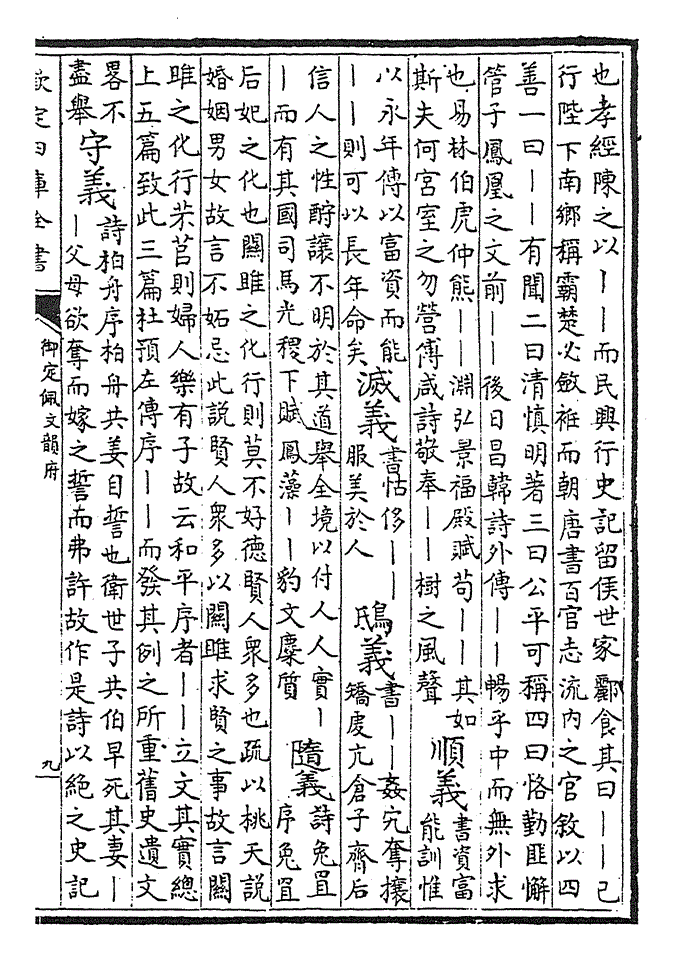 也孝經陳之以——而民興行史記留侯世家酈食其曰——已
行陛下南鄉稱霸楚必斂袵而朝唐書百官志流内之官敘以四
善一曰——有聞二曰清慎明著三曰公平可稱四曰恪勤匪懈
管子鳳凰之文前——後日昌韓詩外傳——暢乎中而無外求
也易林伯虎仲熊——淵弘景福殿賦苟——其如
斯夫何宮室之勿營傅咸詩敬奉——樹之風聲
順義
書資富
能訓惟
以永年傳以富資而能
——則可以長年命矣
滅義
書怙侈——
服美於人
鴟義
書——姦宄奪攘
矯虔亢倉子齊后
信人之性酧讓不明於其道舉全境以付人人實—
—而有其國司馬光稷下賦鳳藻——豹文麋質
隨義
詩兔罝
序兔罝
后妃之化也關雎之化行則莫不好德賢人衆多也疏以桃夭說
婚姻男女故言不妬忌此說賢人衆多以關雎求賢之事故言關
雎之化行芣苢則婦人樂有子故云和平序者——立文其實總
上五篇致此三篇杜預左傳序——而發其例之所重舊史遺文
畧不
盡舉
守義
詩柏舟序柏舟共姜自誓也衛世子共伯早死其妻—
—父母欲奪而嫁之誓而弗許故作是詩以絶之史記
欽定四庫全書
御定佩文韻府
九